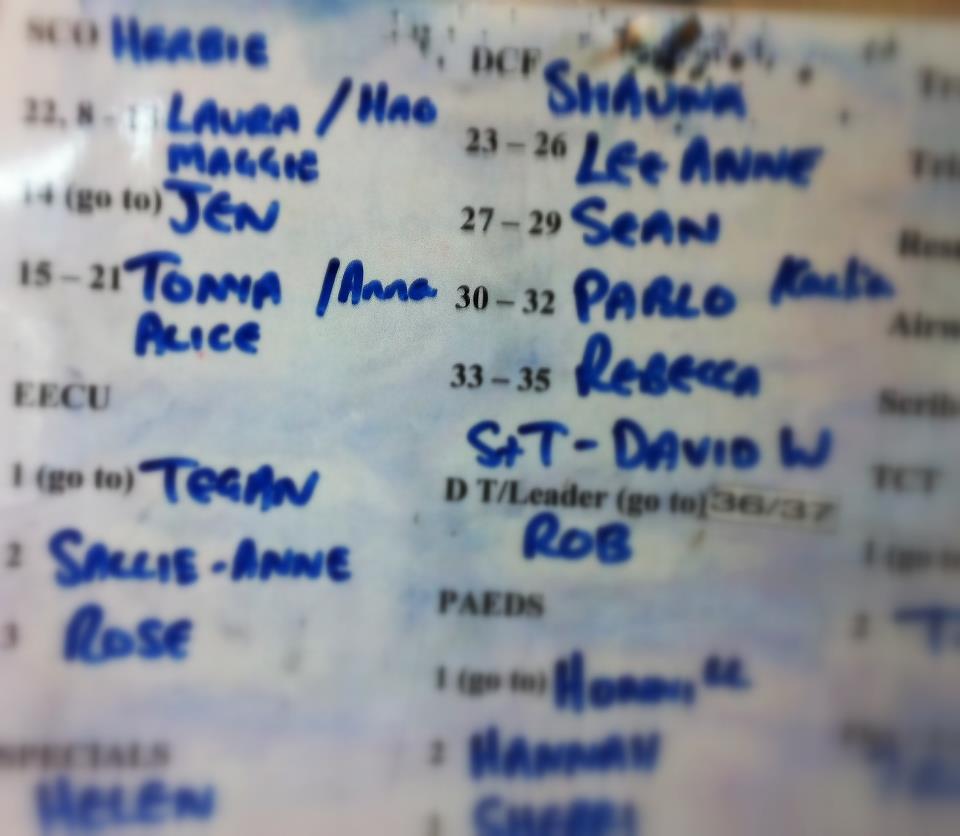 SCO HERBIE
22, 8 - LAURA / HAO
MAGGIE
14 (go to) JEN
15 – 21 TONYA / Anna
ALICE
EECU
1 (go to) TEGAN
2 SALLIE-ANNE
3 ROSE
SPECIALS
HELEN
DCF SHAUNA
23 – 26 LEE ANNE
27 – 29 SEAN
30 – 32 PABLO
33 – 35 REBECCA
S+T - DAVID W
D T/Leader (go to) 36/37
ROB
PAEDS
1 (go to)
2 HANNAH
SHERRI
TCT
2